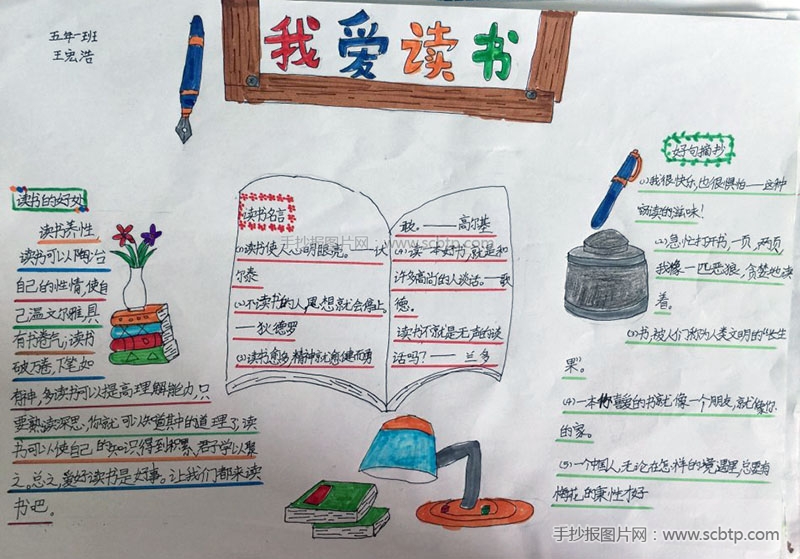 五年一班
王宏浩
我爱读书
读书的好处
读书养性,
读书可以陶冶
自己的性情,使自
己温文尔雅,具
有书卷气;读书
破万卷,下笔如
有神,多读书可以提高理解能力,只
要熟读深思,你就可以知道其中的道理了,读
书可以使自己的知识得到积累,君子学以聚
之,总之,爱好读书是好事。让我们都来读
书吧。
读书名言
(1)读书使人心明眼亮。——伏
尔泰
(2)不读书的人,思想就会停止。
——狄德罗
(3)读书愈多,精神就愈健而勇
敢。——高尔基
(4)读一本好书,就是和
许多高尚的人谈话。——歌
德。
读书不就是无声的谈
话吗?——兰多
手抄报图片网:www.scbtp.com
好句摘抄
(1)我很快乐,也很惧怕——这种
窃读的滋味!
(2)急忙打开书,一页,两页,
我像一匹恶狼,贪婪地读
着。
(3)书,被人们称为人类文明的"长生
果"。
(4)一本你喜爱的书就像一个朋友,就像你
的家。
(5)一个中国人,无论在怎样的境遇里,总要有
梅花的秉性才好
手抄报图片网:www.scbtp.com